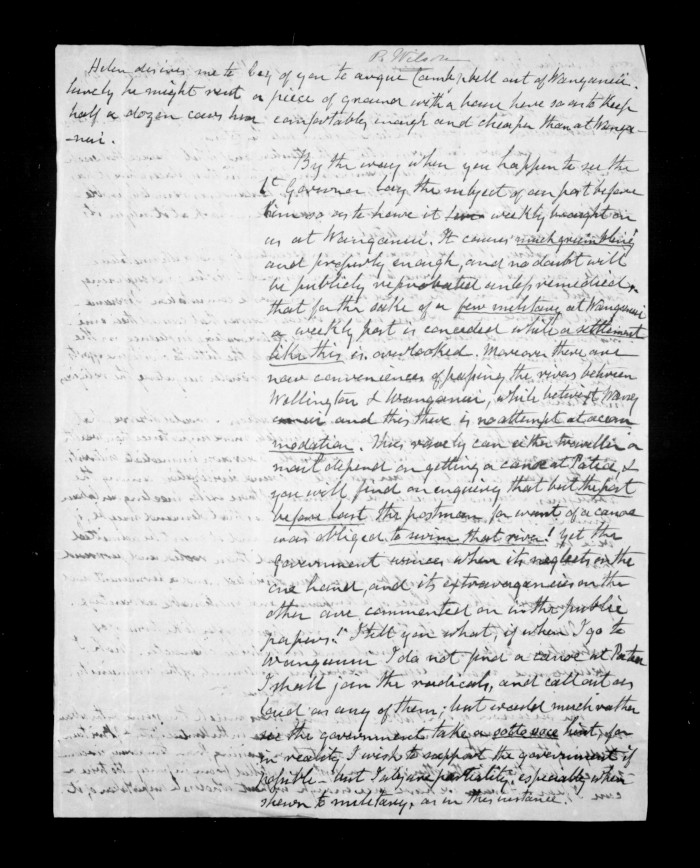 P. Wilson
Helen desires me to beg of you to argue Campbell out of Wanganui.
Surely he might rent a piece of ground with a house here so as to keep
half a dozen cows here comfortably enough and cheaper than at Wanga-
-nui.
By the way when you happen to see the
Lt Governor lay the subject of our post before
him so as to have it weekly brought on
as at Wanganui. It causes much grumbling
and properly enough, and no doubt will
be publicly reprobated unless remedied,
that for the sake of a few military at Wanganui
a weekly post is conceded while a settlement
like this is overlooked. Moreover there are
now conveniences of passing the rivers between
Wellington & Wanganui, while betwixt Wang
and this there is no attempt at accom
modation. Thus rarely can either traveller or
mail depend on getting a canoe at Patea, &
you will find on enquiry that but the post
before last the postman for want of a canoe
was obliged to swim that river! Yet the
Government winces when its neglects on the
one hand, and its extravagancies on the
other are commented on in the public
papers! I tell you what, if when I go to
Wanganui I do not find a canoe at Patea
I shall join the radicals, and call out as
loud as any of them; but would much rather
see the government take a sotto voce hint, for
in reality I wish to support the government if
possible - but partiality, especially when
shewn to military, as in this instance.